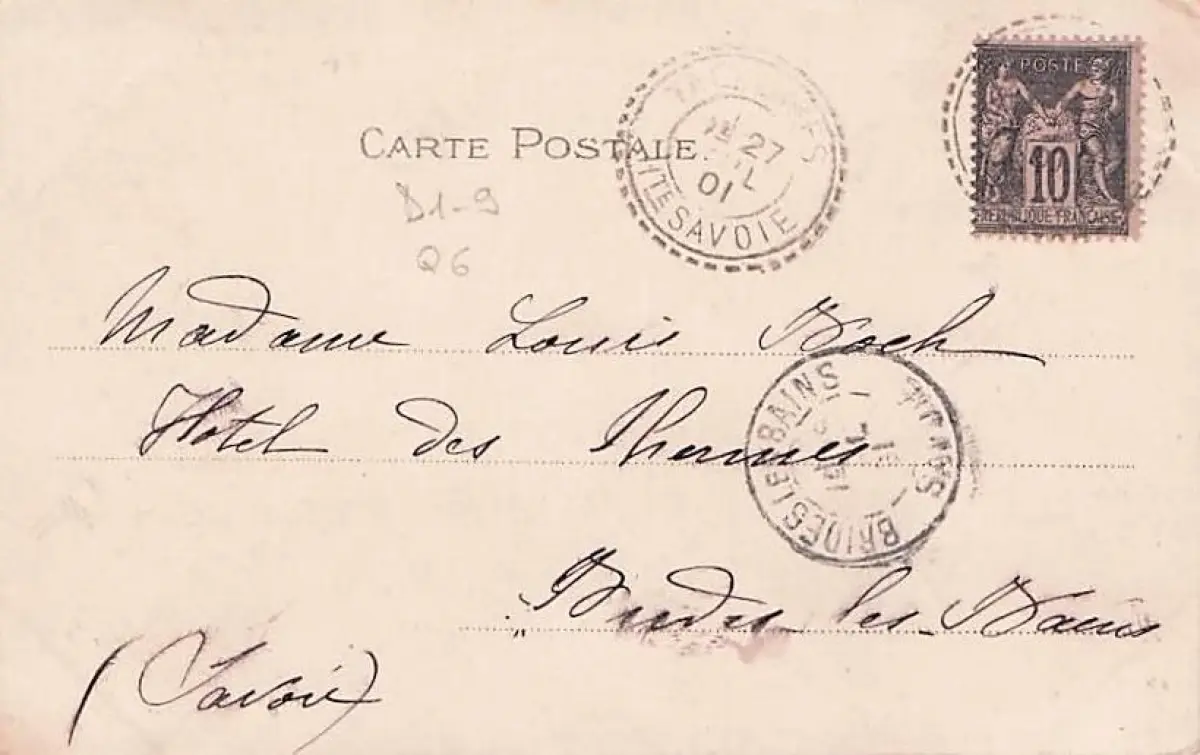 CARTE POSTALE.
27
01
HTE SAVOIE
POSTE
10
REPUBLIQUE FRANÇAISE
D1-9
Q6
Madame Louis Koch
Hotel des Thermes
BRIDES LES BAINS
SAVOIE
Brides les Bains
(Savoie)